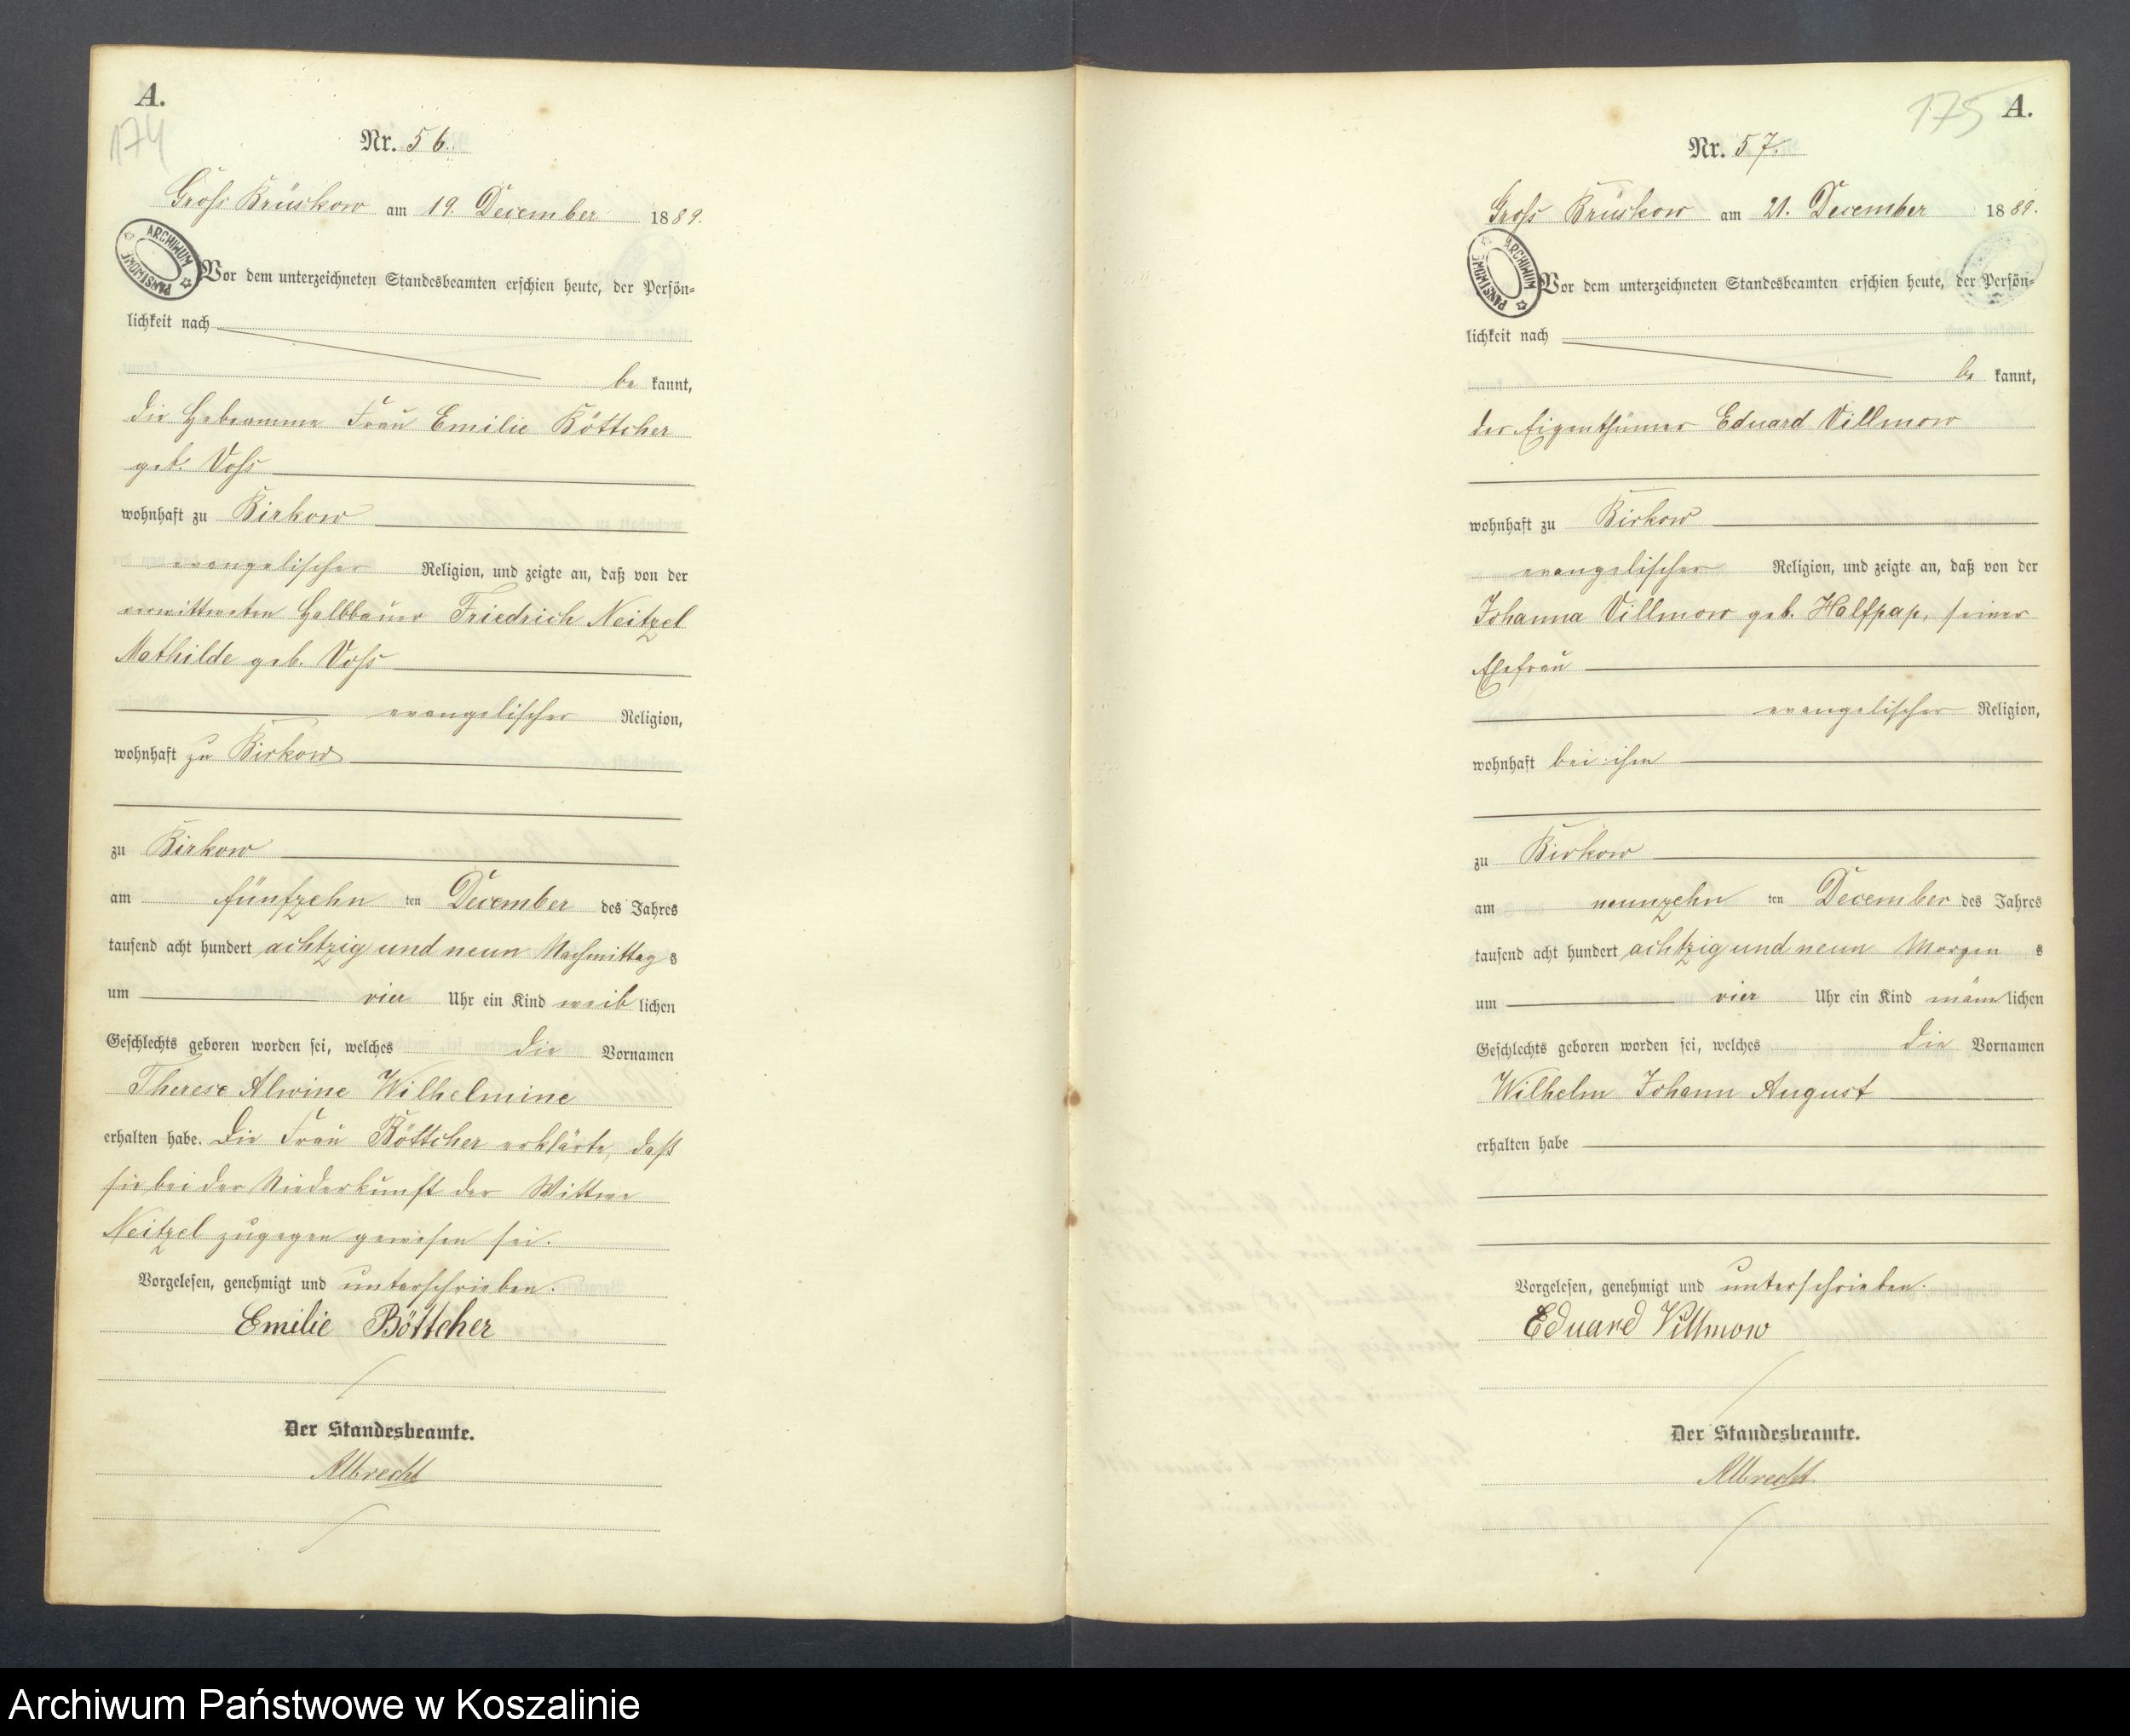 A.
174
Nr. 56.
Groß Brüskow am 19. December 1889.
ARCHIWUM PAŃSTWOWE
Vor dem unterzeichneten Standesbeamten erschien heute, der Persön-
lichkeit nach
be kannt,
die Hebeamme Frau Emilie Böttcher
geb. Voß
wohnhaft zu Birkow
evangelischer Religion, und zeigte an, daß von der
verwittweten Halbbauer Friedrich Neitzel
Mathilde geb. Voß
evangelischer Religion,
wohnhaft zu Birkow
zu Birkow
am fünfzehn ten December des Jahres
tausend acht hundert achtzig und neun Nachmittag s
um vier Uhr ein Kind weib lichen
Geschlechts geboren worden sei, welches die Vornamen
Therese Alwine Wilhelmine
erhalten habe. Die Frau Böttcher erklärte, daß
sie bei der Niederkunft der Wittwe
Neitzel zugegen gewesen sei.
Vorgelesen, genehmigt und unterschrieben.
Emilie Böttcher
Der Standesbeamte.
Albrecht
175
A.
Nr. 57.
Groß Brüskow am 21. December 1889.
ARCHIWUM PAŃSTWOWE
Vor dem unterzeichneten Standesbeamten erschien heute, der Persön-
lichkeit nach
be kannt,
der Eigenthümer Eduard Villmow
wohnhaft zu Birkow
evangelischer Religion, und zeigte an, daß von der
Johanna Villmow geb. Halfpap, seiner
Ehefrau
evangelischer Religion,
wohnhaft bei ihm
zu Birkow
am neunzehn ten December des Jahres
tausend acht hundert achtzig und neun Morgen s
um vier Uhr ein Kind männ lichen
Geschlechts geboren worden sei, welches die Vornamen
Wilhelm Johann August
erhalten habe
Vorgelesen, genehmigt und unterschrieben.
Eduard Villmow
Der Standesbeamte.
Albrecht
Archiwum Państwowe w Koszalinie